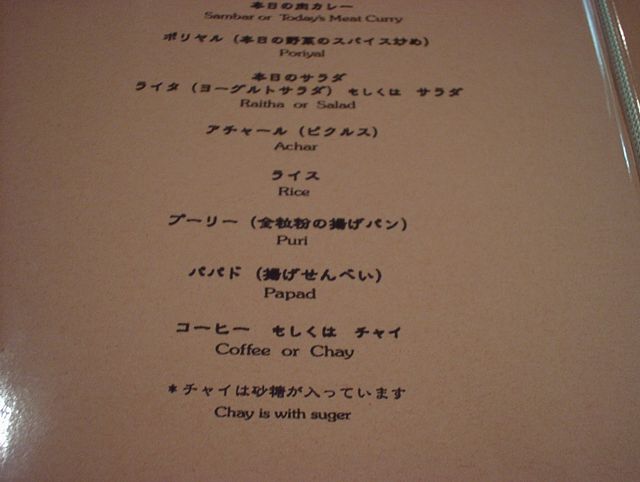 本日の肉カレー
Sambar or Today's Meat Curry
ポリヤル（本日の野菜のスパイス炒め）
Poriyal
本日のサラダ
ライタ（ヨーグルトサラダ） もしくは サラダ
Raitha or Salad
アチャール（ピクルス）
Achar
ライス
Rice
プーリー（全粒粉の揚げパン）
Puri
パパド（揚げせんべい）
Papad
コーヒー もしくは チャイ
Coffee or Chay
*チャイは砂糖が入っています
Chay is with suger